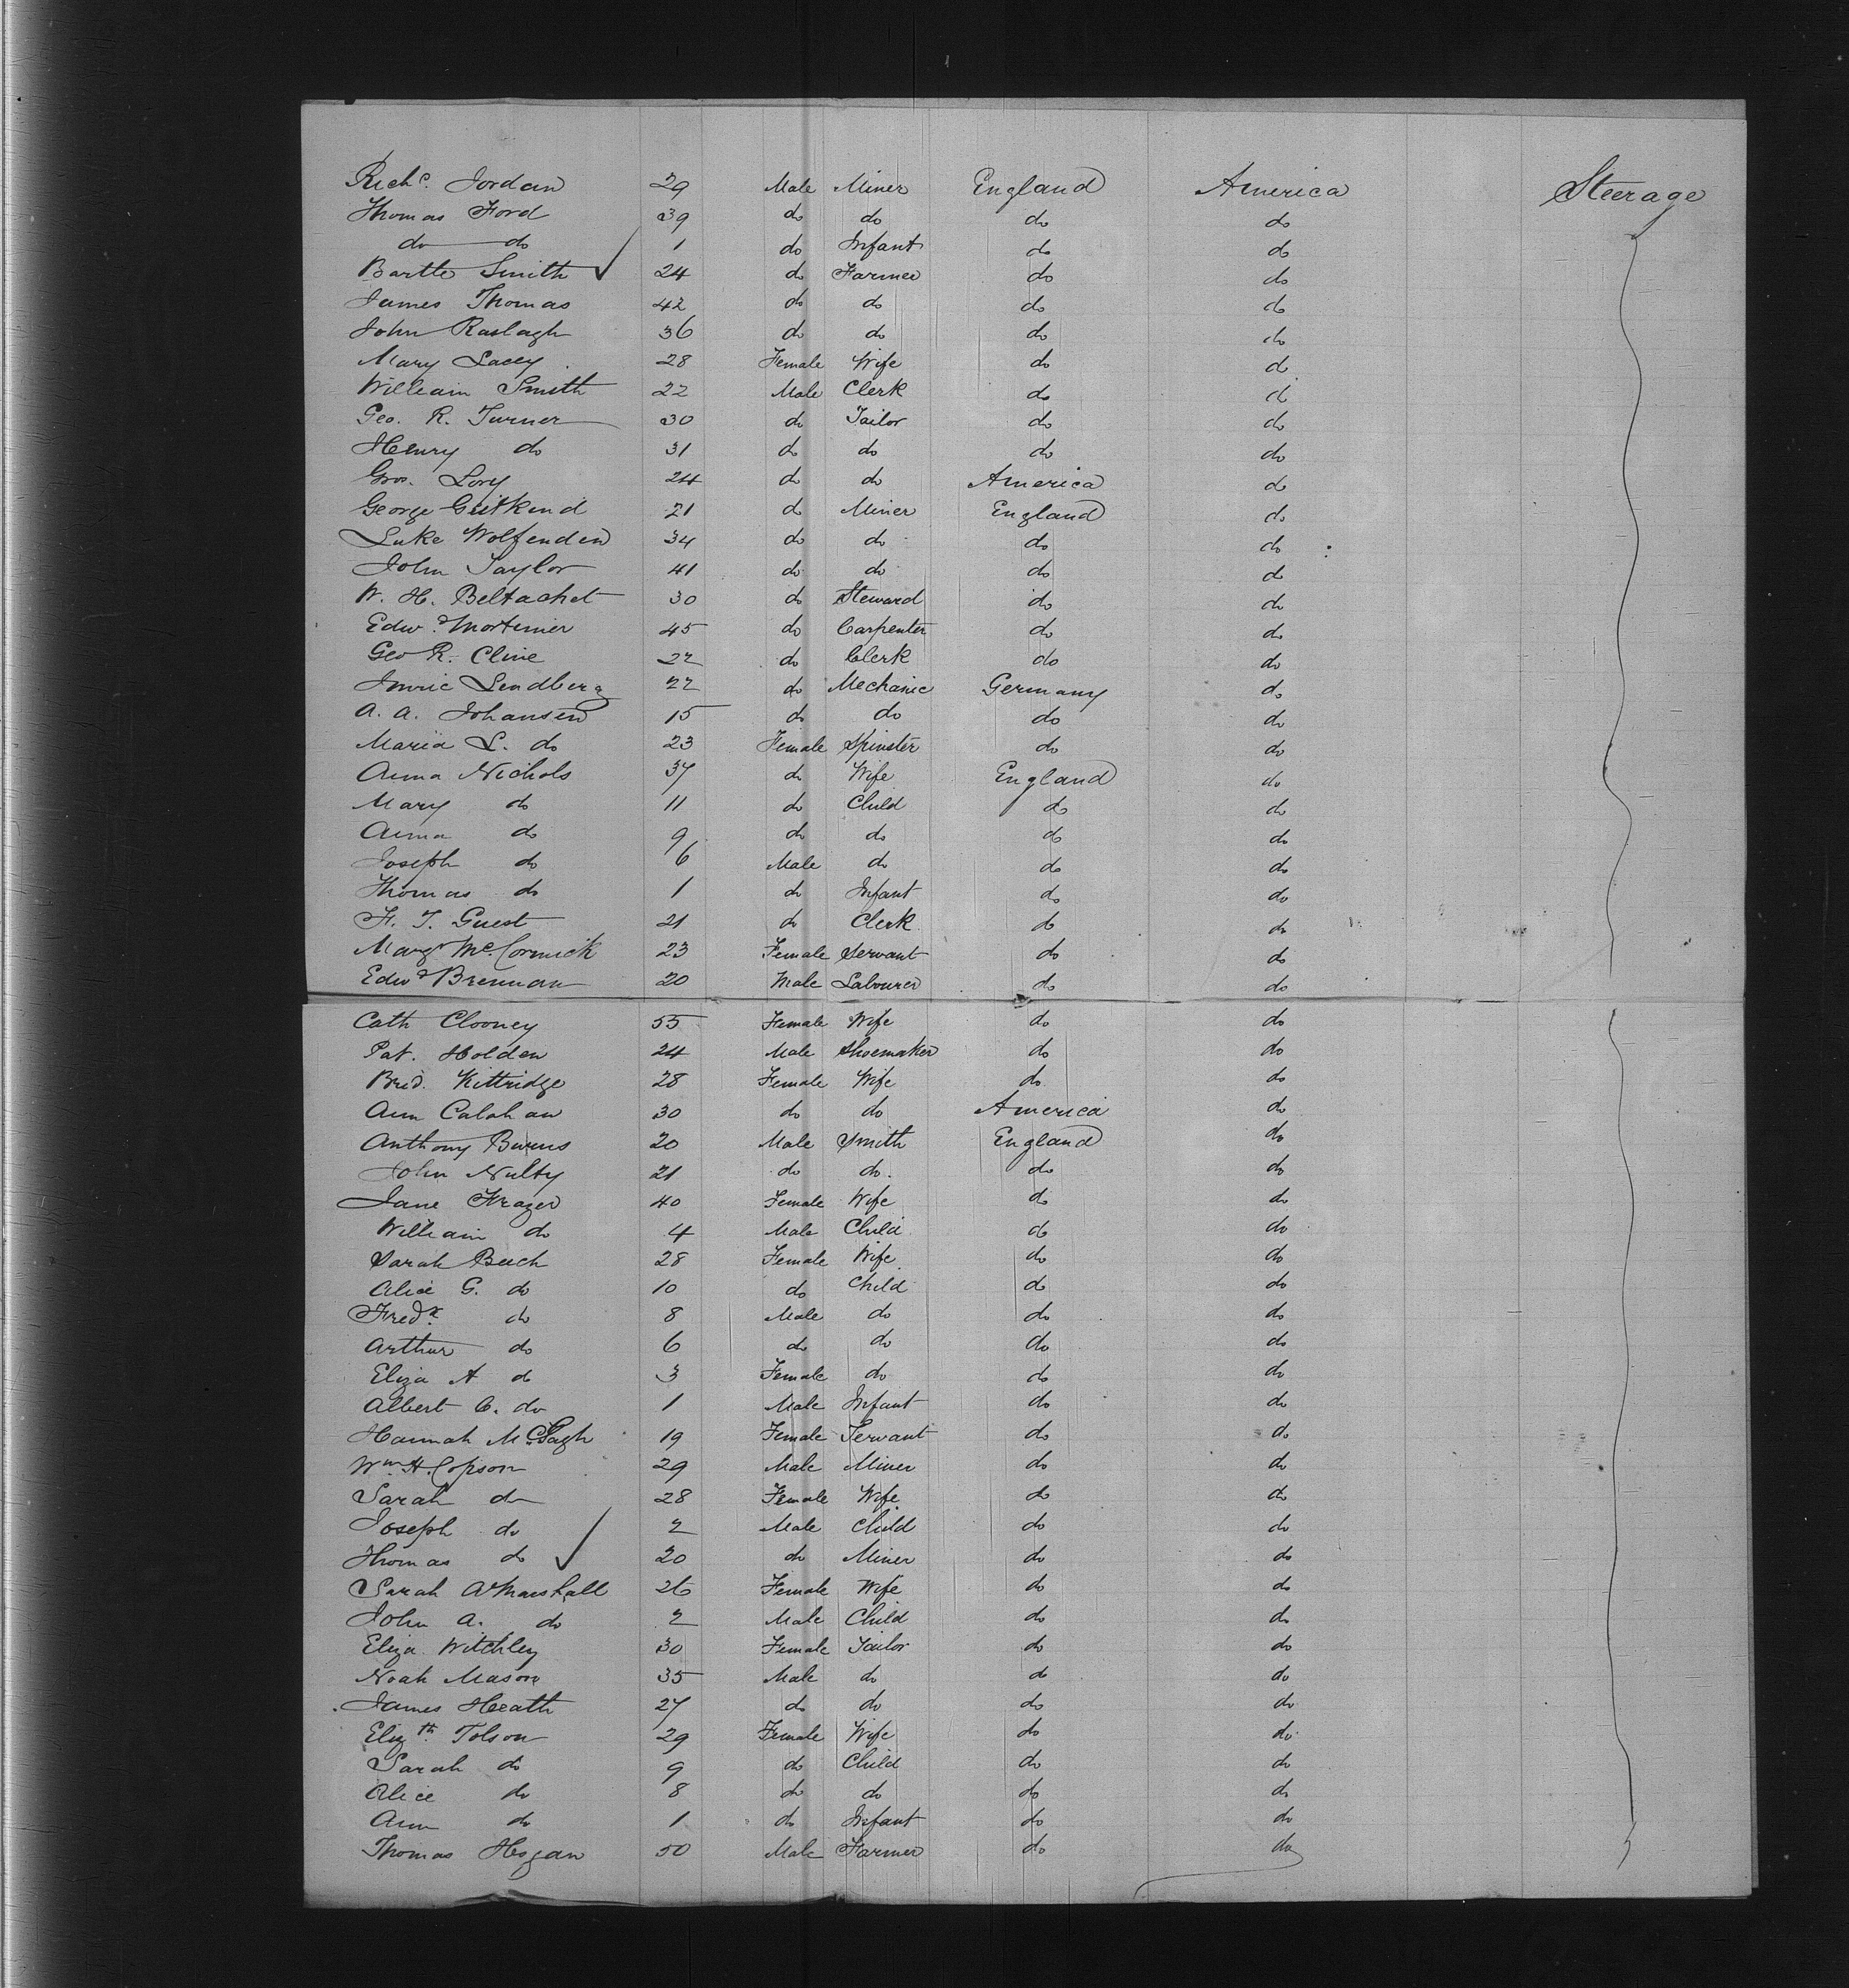 Rich^c. Jordan 29 Male Miner England America Steerage
Thomas Ford 39 do do do do
do do 1 do Infant do do
Bartle Smith ✓ 24 do Farmer do do
James Thomas 42 do do do do
John Raslagh 36 do do do do
Mary Lacey 28 Female Wife do do
William Smith 22 Male Clerk do do
Geo. R. Turner 30 do Tailor do do
Henry do 31 do do do do
Lory 24 do do America do
George 21 do Miner England do
Luke Wolfenden 34 do do do do
John Taylor 41 do do do do
W. H. Beltachet 30 do Steward do do
Edw^d Mortimer 45 do Carpenter do do
Geo R. Cline 22 do Clerk do do
Lendberg 22 do Mechanic Germany do
A. A. Johansen 15 do do do do
Maria L. do 23 Female Spinster do do
Anna Nichols 37 do Wife England do
Mary do 11 do Child do do
Anna do 9 do do do do
Joseph do 6 Male do do do
Thomas do 1 do Infant do do
F. T. Guest 21 do Clerk do do
Marg^t McCormick 23 Female Servant do do
Edw^d Brennan 20 Male Labourer do do
Cath Clooney 55 Female Wife do do
Pat. Holden 24 Male Shoemaker do do
Brid. Kittridge 28 Female Wife do do
Ann Calahan 30 do do America do
Anthony Burns 20 Male Smith England do
John Nulty 21 do do. do do
Jane Frazer 40 Female Wife do do
William do 4 Male Child do do
Sarah Beech 28 Female Wife do do
Alice G. do 10 do Child do do
Fred^k do 8 Male do do do
Arthur do 6 do do do do
Eliza A do 3 Female do do do
Albert C. do 1 Male Infant do do
Hannah 19 Female Servant do do
W^m H. Copson 29 Male Miner do do
Sarah do 28 Female Wife do do
Joseph do 2 Male Child do do
Thomas do ✓ 20 do Miner do do
Sarah A Marshall 26 Female Wife do do
John A. do 2 Male Child do do
Eliza Witchley 30 Female Tailor do do
Noah Mason 35 Male do do do
James Heath 27 do do do do
Eliz^th Tolson 29 Female Wife do do
Sarah do 9 do Child do do
Alice do 8 do do do do
Ann do 1 do Infant do do
Thomas Hogan 50 Male Farmer do do